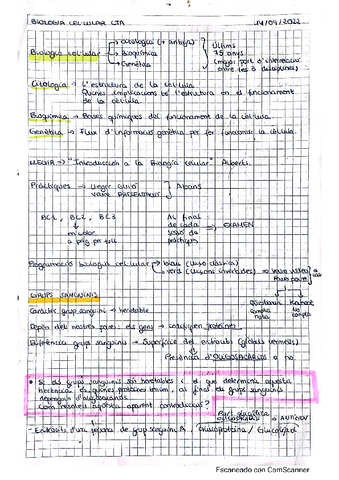 BIOLOGIA CEL·LULAR CTA 14/09/2022
Biologia cel·lular → Citologia (+ antiga)
→ Bioquímica
→ Genètica
Últims
75 anys
(major part d'interacció
entre les 3 disciplines)
Citologia → L'estructura de la cèl·lula.
Quines implicacions té l'estructura en el funcionament
de la cèl·lula.
Bioquímica → Bases químiques del funcionament de la cèl·lula.
Genètica → Flux d'informació genètica per fer funcionar la cèl·lula.
→ "Introducción a la Biología Celular" Alberts.
Pràctiques → Llegir guió
veure
Abans
BC1, BC2, BC3
en color
a
AL final
de cada
sessió de
pràctiques
→ EXAMEN
Programació biologia cel·lular → blau (classe clàssica)
→ verd (classes invertides) →
Qüestionari
compta
nota
Kahoot
no
compta
GRUPS SANGUINIS
Caràcter grup sanguini → heretable
Depèn dels nostres pares: els gens → codifiquen proteïnes
Diferència grups sanguinis → Superfície dels eritròcits (glòbuls vermells)
Presència d'OLIGOSACÀRIDS o no.
• Si els grups sanguinis són heretables i el que determina aquesta
herència és quines proteïnes tenim, al final els grups sanguinis
depenen d'oligosacàrids.
Com resoleu aquesta aparent contradicció?
Part glucídica
OLIGOSACÀRID →
- Eritròcit d'una persona de grup sanguini A. Glicoproteïna / Glicolípid
Escaneado con CamScanner